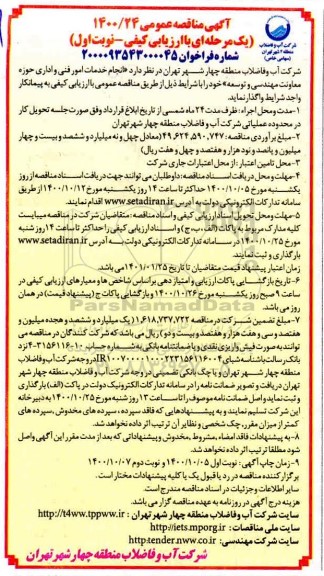 آگهی مناقصه عمومی ۱۴۰۰/۲۴
(یک مرحله ای با ارزیابی کیفی - نوبت اول)
شماره فراخوان ۲۰۰۰۰۹۳۵۴۳۰۰۰۰۴۵
شرکت آب و فاضلاب
منطقه ۴ شهر تهران
(سهامی خاص)
شرکت آب وفاضلاب منطقه چهار شهر تهران در نظر دارد «انجام خدمات امور فنی و اداری حوزه
معاونت مهندسی و توسعه» خود را با شرایط ذیل از طریق مناقصه عمومی با ارزیابی کیفی به پیمانکار
واجد شرایط واگذار نماید.
۱-مدت ومحل اجراء: ظرف مدت ۲۴ ماه شمسی از تاریخ ابلاغ قرارداد وفق صورت جلسه تحویل کار
در محدوده عملیاتی شرکت آب و فاضلاب منطقه چهار شهر تهران
۲-مبلغ برآوردی مناقصه: ۴۹,۶۲۴,۵۹۰,۷۴۷ (معادل چهل و نه میلیارد و ششصد و بیست و چهار
میلیون و پانصد و نود هزار و هفتصد و چهل و هفت ریال)
۳-محل تامین اعتبار: از محل اعتبارات جاری شرکت
۴-مهلت و محل دریافت اسناد مناقصه: داوطلبان می توانند جهت دریافت اسناد مناقصه از روز
یکشنبه مورخ ۱۴۰۰/۱۰/۰۵ حداکثر تا ساعت ۱۴ روز یکشنبه مورخ ۱۴۰۰/۱۰/۱۲ از طریق
سامانه تدارکات الکترونیکی دولت به آدرس www.setadiran.ir اقدام نمایند.
۵-مهلت و محل تحویل اسناد ارزیابی کیفی و اسناد مناقصه: متقاضیان شرکت در مناقصه میبایست
کلیه مدارک مربوط به پاکات (الف،ب،ج) و اسناد ارزیابی کیفی را حداکثر تا ساعت ۱۴ روز شنبه
مورخ ۱۴۰۰/۱۰/۲۵ در سامانه تدارکات الکترونیکی دولت به آدرس www.setadiran.ir
بارگذاری و ثبت نمایند.
زمان اعتبار پیشنهاد قیمت متقاضیان تا تاریخ ۱۴۰۱/۰۱/۲۵ می باشد.
۶- تاریخ بازگشایی پاکات ارزیابی و امتیازدهی براساس شاخص ها و معیارهای ارزیابی کیفی در
ساعت ۹ صبح روز یکشنبه مورخ ۱۴۰۰/۱۰/۲۶ و بازگشایی پاکات ج (پیشنهاد قیمت) در همان
روز می باشد.
۷-مبلغ تضمین شرکت در مناقصه ۱,۶۱۸,۷۳۷,۷۲۲ (یک میلیارد و ششصد و هجده میلیون و
هفتصد و سی و هفت هزار و هفتصد و بیست و دو) ریال می باشد که شرکت کنندگان در مناقصه می
توانند به صورت فیش واریزی نقدی و یا ضمانتنامه بانکی به شماره حساب
بانک رسالت با شناسه شبای در وجه شرکت آب وفاضلاب
منطقه چهار شهر تهران و یا چک بانکی تضمینی در وجه شرکت آب و فاضلاب منطقه چهار شهر
تهران دریافت و تصویر ضمانت نامه را در سامانه تدارکات الکترونیک دولت در پاکت (الف) بارگذاری
و ثبت نماید و اصل ضمانت نامه موصوف را تا ساعت ۱۳ روز شنبه مورخ ۱۴۰۰/۱۰/۲۵ به دبیرخانه
این شرکت تسلیم نمایند و به پیشنهادهایی که فاقد سپرده، سپرده های مخدوش، سپرده های
کمتر از میزان مقرر، چک شخصی و نظایر آن ترتیب اثر داده نخواهد شد.
۸- به پیشنهادات فاقد امضاء، مشروط، مخدوش و پیشنهاداتی که بعد از مدت مقرر این آگهی واصل
شود مطلقا ترتیب اثر داده نخواهد شد.
۹-زمان چاپ آگهی: نوبت اول ۱۴۰۰/۱۰/۰۵ و نوبت دوم ۱۴۰۰/۱۰/۰۷
برگزار کننده مناقصه در رد یا قبول یک یا کلیه پیشنهادات مختار است.
سایر اطلاعات و جزئیات در اسناد مناقصه مندرج است
هزینه درج آگهی در روزنامه به عهده مناقصه گزار می باشد.
سایت شرکت آب و فاضلاب منطقه چهار شهر تهران : http://t4ww.tppww.ir
سایت ملی مناقصات: http://iets.mporg.ir
سایت شرکت مهندسی: http:tender.nww.co.ir
شرکت آب و فاضلاب منطقه چهار شهر تهران
ParsNamadData